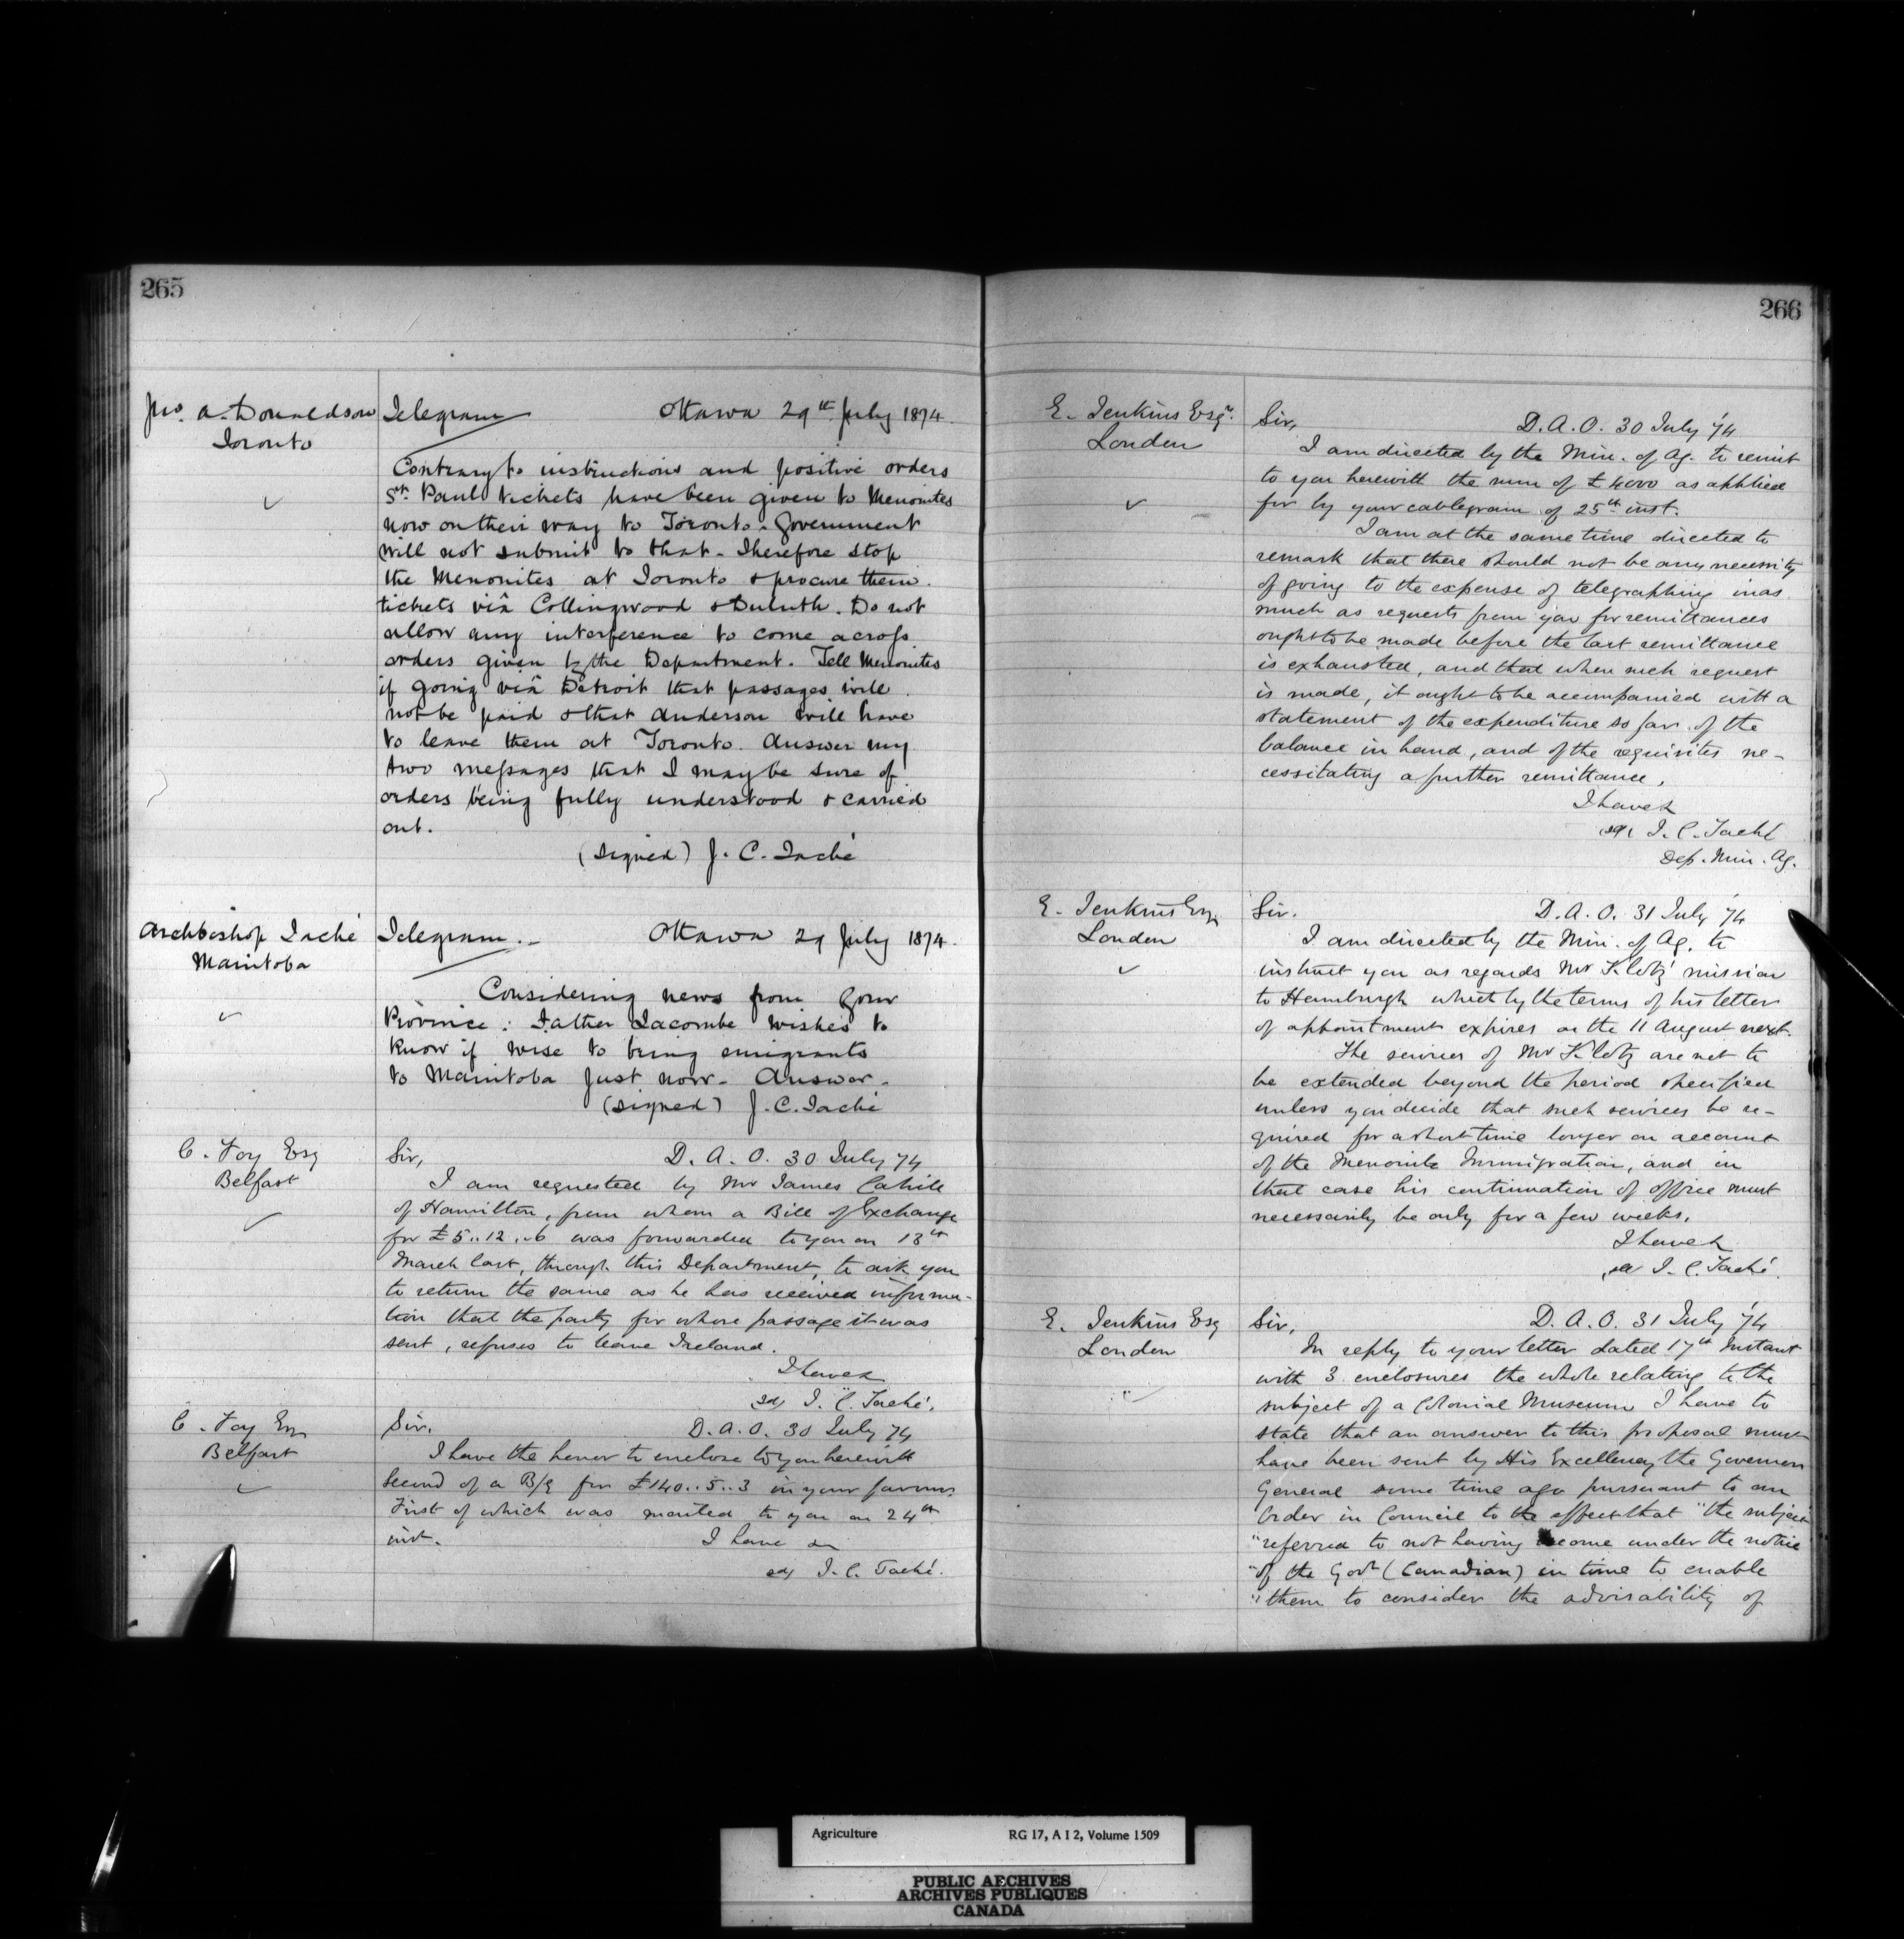 265
Jno. A. Donaldson
Toronto
Telegram Ottawa 29th July 1874.
Contrary to instructions and positive orders
St. Paul tickets have been given to Menonites
now on their way to Toronto. Government
will not submit to that. Therefore stop
the Menonites at Toronto & procure them
tickets viâ Collingwood & Duluth. Do not
allow any interference to come across
orders given by the Department. Tell Menonites
if going viâ Detroit that passages will
not be paid & that Anderson will have
to leave them at Toronto. Answer my
two messages that I may be sure of
orders being fully understood & carried
out.
(signed) J. C. Taché
Archbishop Taché
Manitoba
Telegram. Ottawa 29 July 1874.
Considering news from your
Province: Father Lacombe wishes to
know if wise to bring emigrants
to Manitoba just now. Answer.
(signed) J. C. Taché
C. Foy Esq
Belfast
Sir, D. A. O. 30 July 74
I am requested by Mr James Cahill
of Hamilton, from whom a Bill of Exchange
for £5..12..6 was forwarded to you on 13th
March last, through this Department, to ask you
to return the same as he has received informa-
tion that the party for whose passage it was
sent, refuses to leave Ireland.
I have &
sd/ J. C. Taché.
C. Foy Esq
Belfast
Sir. D. A. O. 30 July 74
I have the honor to enclose to you herewith
Second of a B/E for £140..5..3 in your favour
First of which was mailed to you on 24th
inst. I have &
sd/ J. C. Taché.
266
E. Jenkins Esqr.
London
Sir, D. A. O. 30 July '74
I am directed by the Min. of Ag. to remit
to you herewith the sum of £4000 as applied
for by your cablegram of 25th inst.
I am at the same time directed to
remark that there should not be any necessity
of going to the expense of telegraphing inas
much as requests from you for remittances
ought to be made before the last remittance
is exhausted, and that when such request
is made, it ought to be accompanied with a
statement of the expenditure so far, of the
balance in hand, and of the requisites ne-
cessitating a further remittance.
I have &
sd/ J. C. Taché
Dep. Min. Ag.
E. Jenkins Esq
London
Sir. D. A. O. 31 July '74
I am directed by the Min. of Ag. to
instruct you as regards Mr Klotz' mission
to Hamburgh which by the terms of his letter
of appointment expires on the 11 August next.
The services of Mr Klotz are not to
be extended beyond the period specified
unless you decide that such services be re-
quired for a short time longer on account
of the Menonite Immigration, and in
that case his continuation of office must
necessarily be only for a few weeks.
I have &
sd/ J. C. Taché.
E. Jenkins Esq
London
Sir, D. A. O. 31 July '74
In reply to your letter dated 17th Instant
with 3 enclosures the whole relating to the
subject of a Colonial Museum I have to
state that an answer to this proposal must
have been sent by His Excellency the Governor
General some time ago pursuant to an
Order in Council to the effect that "the subject
"referred to not having come under the notice
"of the Govt (Canadian) in time to enable
"them to consider the advisability of
Agriculture RG 17, A I 2, Volume 1509
PUBLIC ARCHIVES
ARCHIVES PUBLIQUES
CANADA